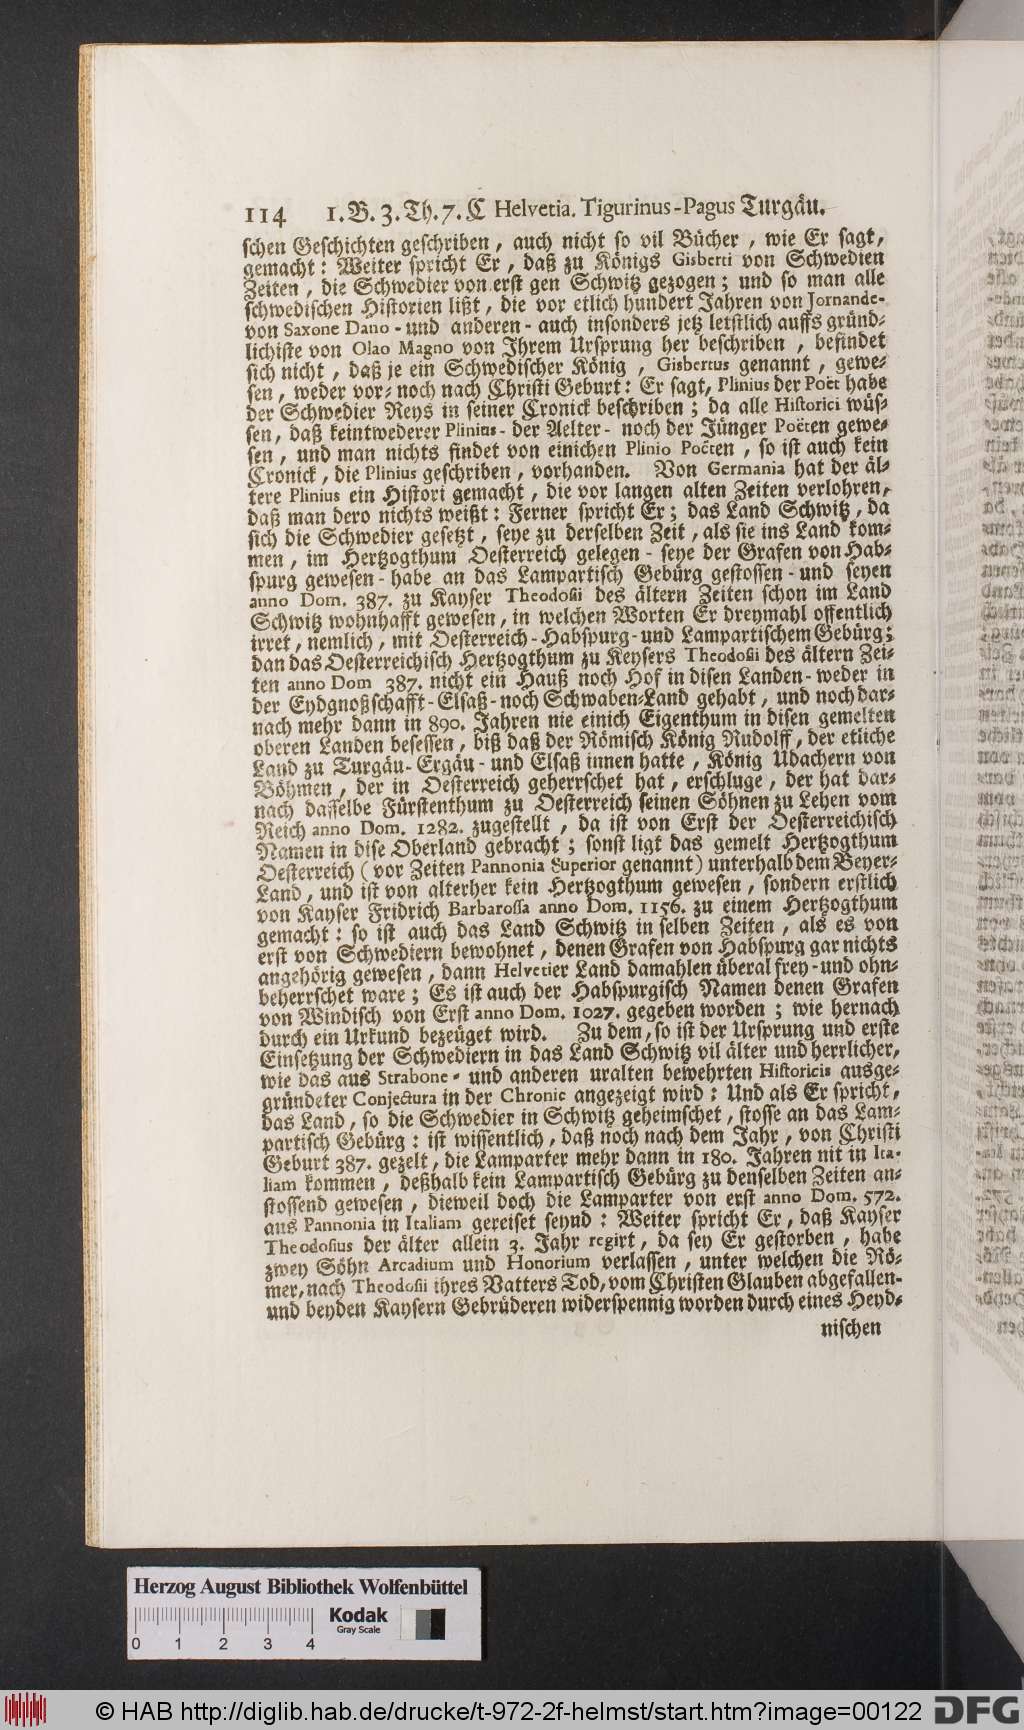 114 1. B. 3. Th. 7. C Helvetia. Tigurinus-Pagus Turgäu.
schen Geschichten geschriben, auch nicht so vil Bücher, wie Er sagt,
gemacht: Weiter spricht Er, daß zu Königs Gisberti von Schwedien
Zeiten, die Schwedier von erst gen Schwitz gezogen; und so man alle
schwedischen Historien lißt, die vor etlich hundert Jahren von Jornande-
von Saxone Dano - und anderen - auch insonders jetz letstlich auffs gründ-
lichiste von Olao Magno von Ihrem Ursprung her beschriben, befindet
sich nicht, daß je ein Schwedischer König, Gisbertus genannt, gewe-
sen, weder vor- noch nach Christi Geburt: Er sagt, Plinius der Poët habe
der Schwedier Reys in seiner Cronick beschriben; da alle Historici wüs-
sen, daß keintwederer Plinius - der Aelter - noch der Jünger Poëten gewe-
sen, und man nichts findet von einichen Plinio Poëten, so ist auch kein
Cronick, die Plinius geschriben, vorhanden. Von Germania hat der äl-
tere Plinius ein Histori gemacht, die vor langen alten Zeiten verlohren,
daß man dero nichts weißt: Ferner spricht Er; das Land Schwitz, da
sich die Schwedier gesetzt, seye zu derselben Zeit, als sie ins Land kom-
men, im Hertzogthum Oesterreich gelegen - seye der Grafen von Hab-
spurg gewesen - habe an das Lampartisch Gebürg gestossen - und seyen
anno Dom. 387. zu Kayser Theodosii des ältern Zeiten schon im Land
Schwitz wohnhafft gewesen, in welchen Worten Er dreymahl offentlich
irret, nemlich, mit Oesterreich - Habspurg - und Lampartischem Gebürg;
dan das Oesterreichisch Hertzogthum zu Keysers Theodosii des ältern Zei-
ten anno Dom 387. nicht ein Hauß noch Hof in disen Landen - weder in
der Eydgnoßschafft - Elsaß - noch Schwaben-Land gehabt, und noch dar-
nach mehr dann in 890. Jahren nie einich Eigenthum in disen gemelten
oberen Landen besessen, biß daß der Römisch König Rudolff, der etliche
Land zu Turgäu - Ergäu - und Elsaß innen hatte, König Udachern von
Böhmen, der in Oesterreich geherrschet hat, erschluge, der hat dar-
nach dasselbe Fürstenthum zu Oesterreich seinen Söhnen zu Lehen vom
Reich anno Dom. 1282. zugestellt, da ist von Erst der Oesterreichisch
Namen in dise Oberland gebracht; sonst ligt das gemelt Hertzogthum
Oesterreich (vor Zeiten Pannonia Superior genannt) unterhalb dem Beyer-
Land, und ist von alterher kein Hertzogthum gewesen, sondern erstlich
von Kayser Fridrich Barbarossa anno Dom. 1156. zu einem Hertzogthum
gemacht: so ist auch das Land Schwitz in selben Zeiten, als es von
erst von Schwediern bewohnet, denen Grafen von Habspurg gar nichts
angehörig gewesen, dann Helvetier Land damahlen überal frey - und ohn-
beherrschet ware; Es ist auch der Habspurgisch Namen denen Grafen
von Windisch von Erst anno Dom. 1027. gegeben worden; wie hernach
durch ein Urkund bezeüget wird. Zu dem, so ist der Ursprung und erste
Einsetzung der Schwediern in das Land Schwitz vil älter und herrlicher,
wie das aus Strabone - und anderen uralten bewehrten Historicis ausge-
gründeter Conjectura in der Chronic angezeigt wird: Und als Er spricht,
das Land, so die Schwedier in Schwitz geheimschet, stosse an das Lam-
partisch Gebürg: ist wissentlich, daß noch nach dem Jahr, von Christi
Geburt 387. gezelt, die Lamparter mehr dann in 180. Jahren nit in Ita-
liam kommen, deßhalb kein Lampartisch Gebürg zu denselben Zeiten an-
stossend gewesen, dieweil doch die Lamparter von erst anno Dom. 572.
aus Pannonia in Italiam gereiset seynd: Weiter spricht Er, daß Kayser
Theodosius der älter allein 3. Jahr regirt, da sey Er gestorben, habe
zwey Söhn Arcadium und Honorium verlassen, unter welchen die Rö-
mer, nach Theodosii ihres Vatters Tod, vom Christen Glauben abgefallen-
und beyden Kaysern Gebrüderen widerspennig worden durch eines Heyd-
nischen
Herzog August Bibliothek Wolfenbüttel
Kodak
Gray Scale
0 1 2 3 4
© HAB http://diglib.hab.de/drucke/t-972-2f-helmst/start.htm?image=00122
DFG